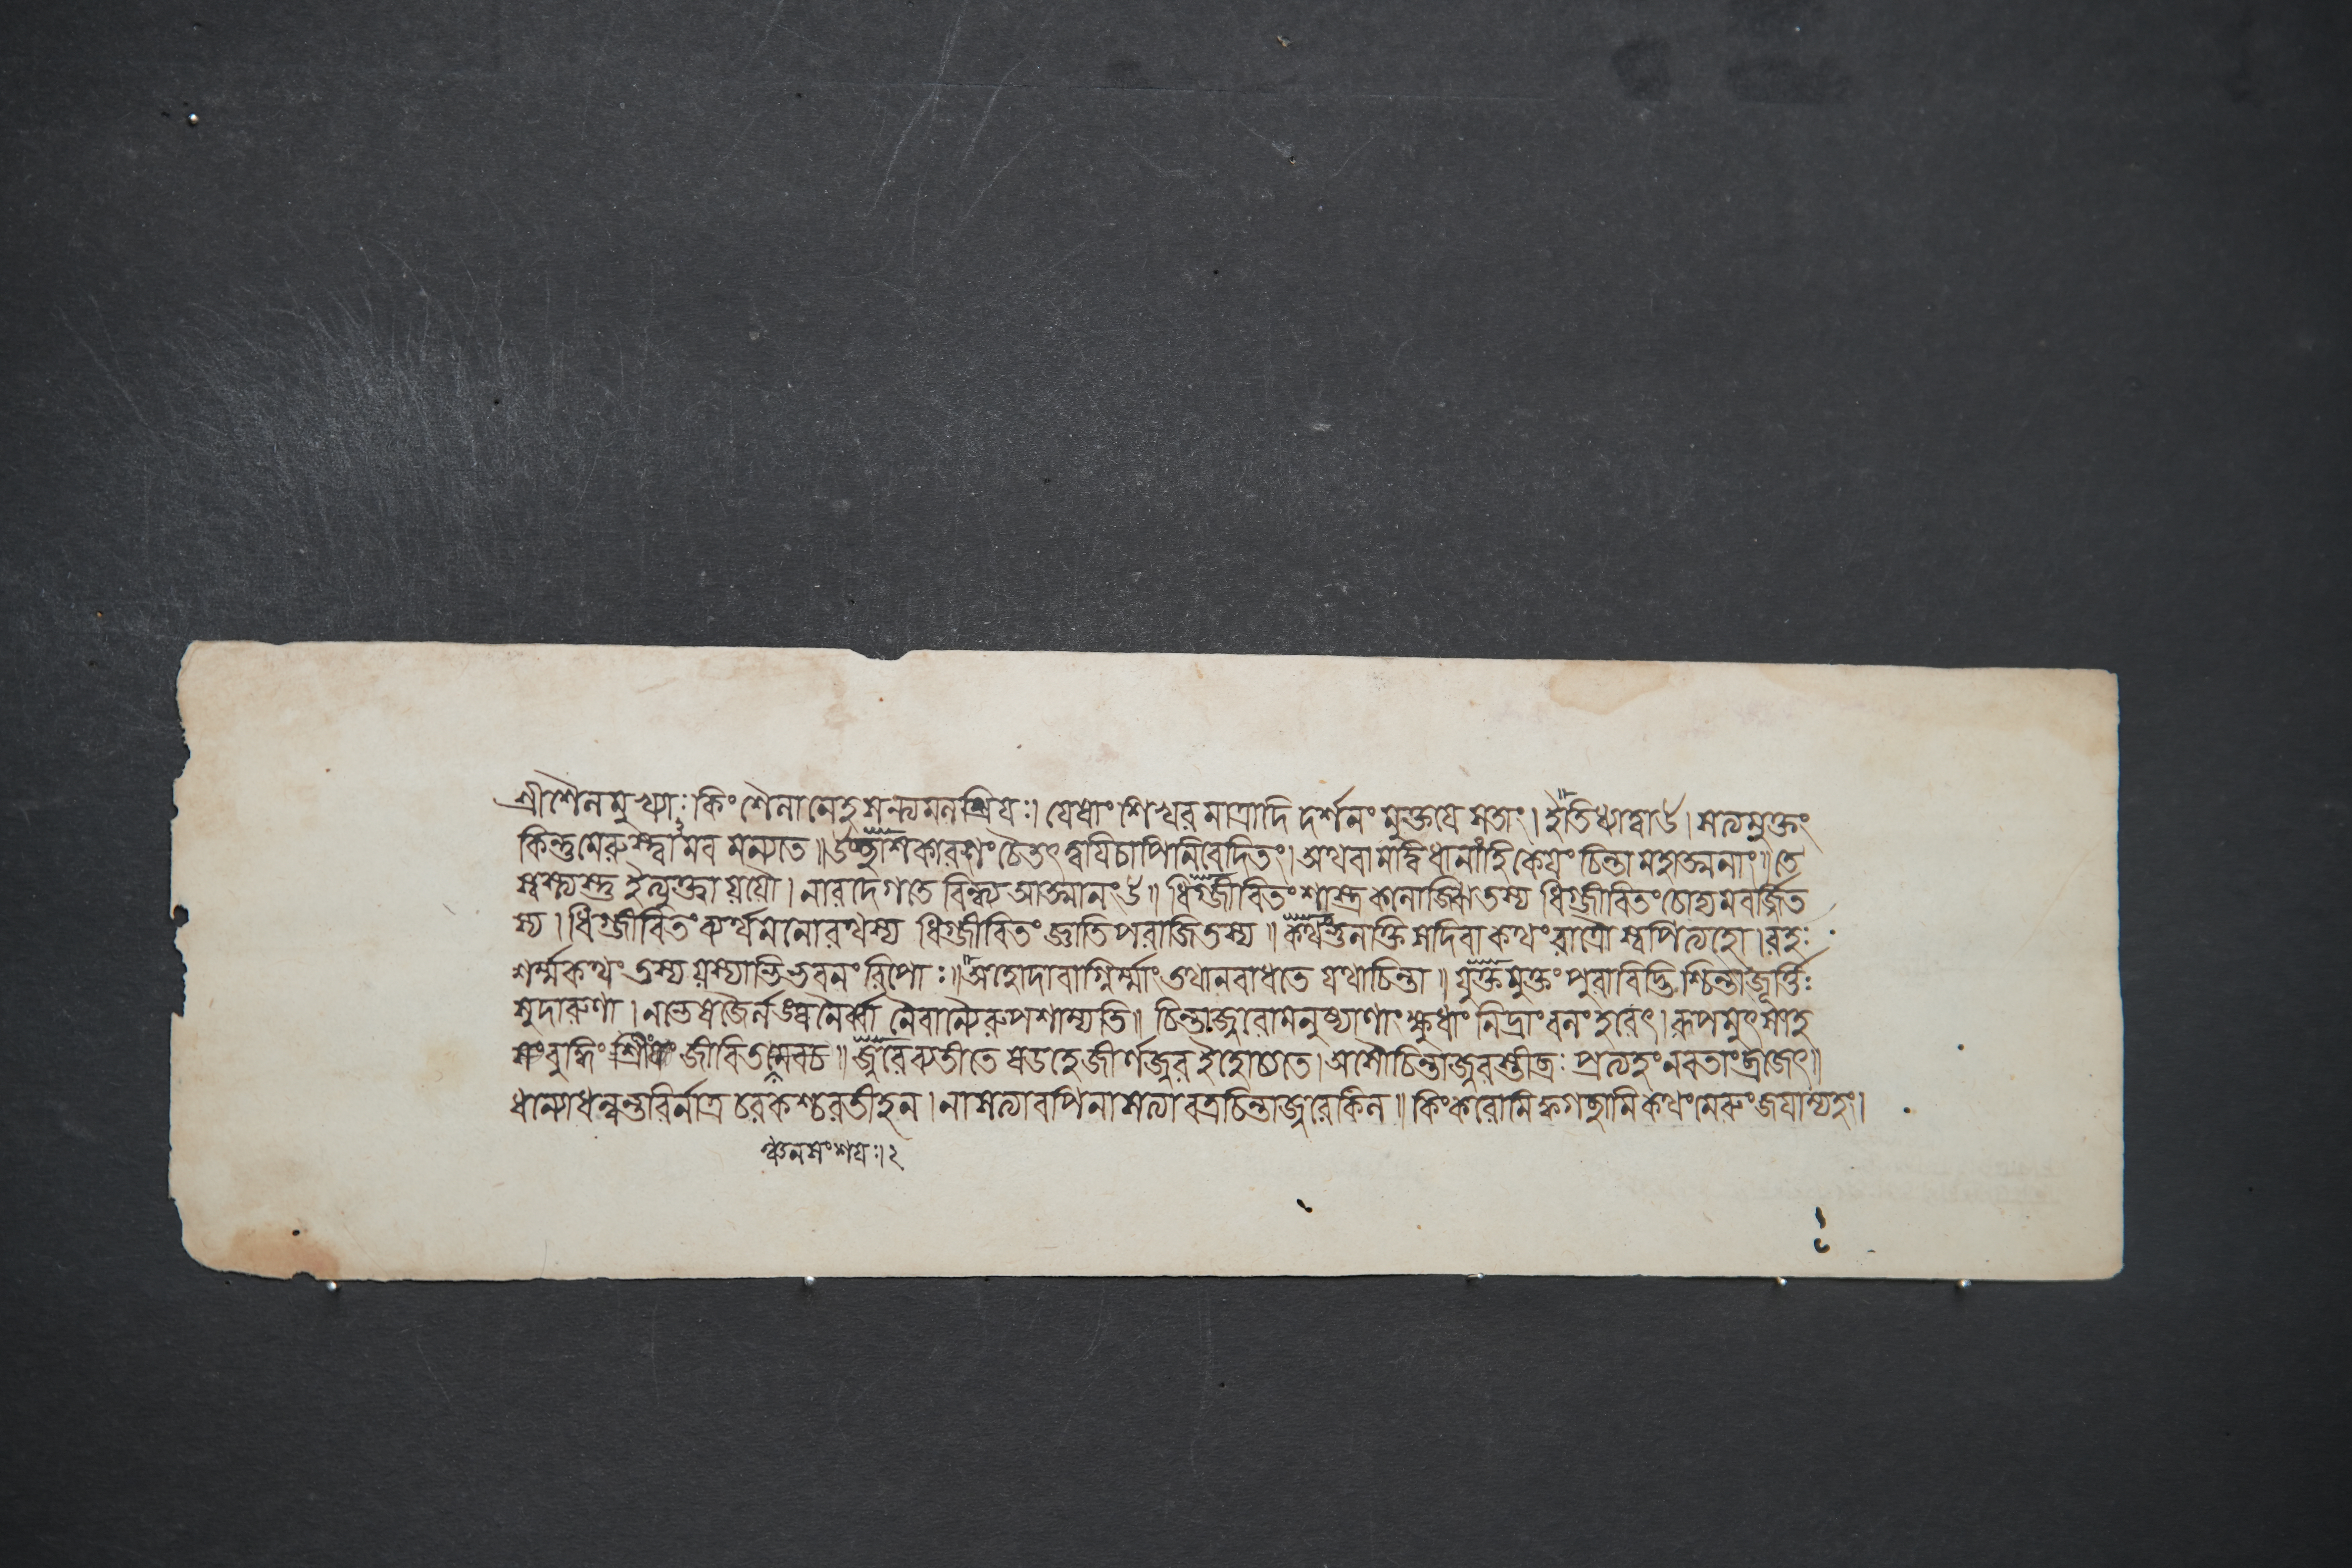 শ্রীশৈলমুখ্যাঃ কিং শৈলা নেহ সন্ত্যমলশ্রিয়ঃ। যেষাং শিখরমাত্রাদি দর্শনং মুক্তয়ে সতাং। ইতি ধ্যাত্বা উ। সত্যমুক্তং
কিন্তু মেরুস্ত্বামব মন্যতে॥ কারণং চৈতৎ ত্বয়ি চাপি নিবেদিতং। অথবা মদ্বিধানাং হি কেয়ং চিন্তা মহাত্মনাং॥ তে
স্বস্ত্যস্তু ইত্যুক্ত্বা যযৌ। নারদে গতে বিন্ধ্য আত্মানং উ॥ ধিগ্জীবিতং শাস্ত্র কলোজ্ঝিতস্য ধিগ্জীবিতং চোদ্যমবর্জ্জিত
স্য। ধিগ্জীবিতং ব্যর্থমনোরথস্য ধিগ্জীবিতং জ্ঞাতিপরাজিতস্য॥ কথং ভুনক্তি স দিবা কথং রাত্রৌ স্বপিত্যহো। রহঃ
শর্ম্ম কথং তস্য যস্যাভিভবনং রিপোঃ॥ অহো দাবাগ্নির্ম্মাং তথা ন বাধতে যথা চিন্তা॥ যুক্তমুক্তং পুরাবিদ্ভিশ্চিন্তামূর্ত্তিঃ
সুদারুণা। ন ভেষজৈর্ন লঙ্ঘনৈর্বা নৈবান্যৈরুপশাম্যতি॥ চিন্তাজ্বরো মনুষ্যাণাং ক্ষুধাং নিদ্রাং বলং হরেৎ। রূপমুৎসাহ
সং বুদ্ধিং শ্রিয়ং জীবিতমেবচ॥ জ্বরো ব্যতীতে ষডহে জীর্ণজ্বর ইহোচ্যতে। অসৌ চিন্তাজ্বরস্তীব্রঃ প্রত্যহং নবতাং ব্রজেৎ॥
ধন্যো ধন্বন্তরির্নাত্র চরকশ্চরতীহ ন। নাসত্যাবপি নাসত্যাবত্র চিন্তাজ্বরে কিল॥ কিং করোমি ক্ব গচ্ছামি কথং মেরুং জয়াম্যহং।
ন সংশয়ঃ। ২